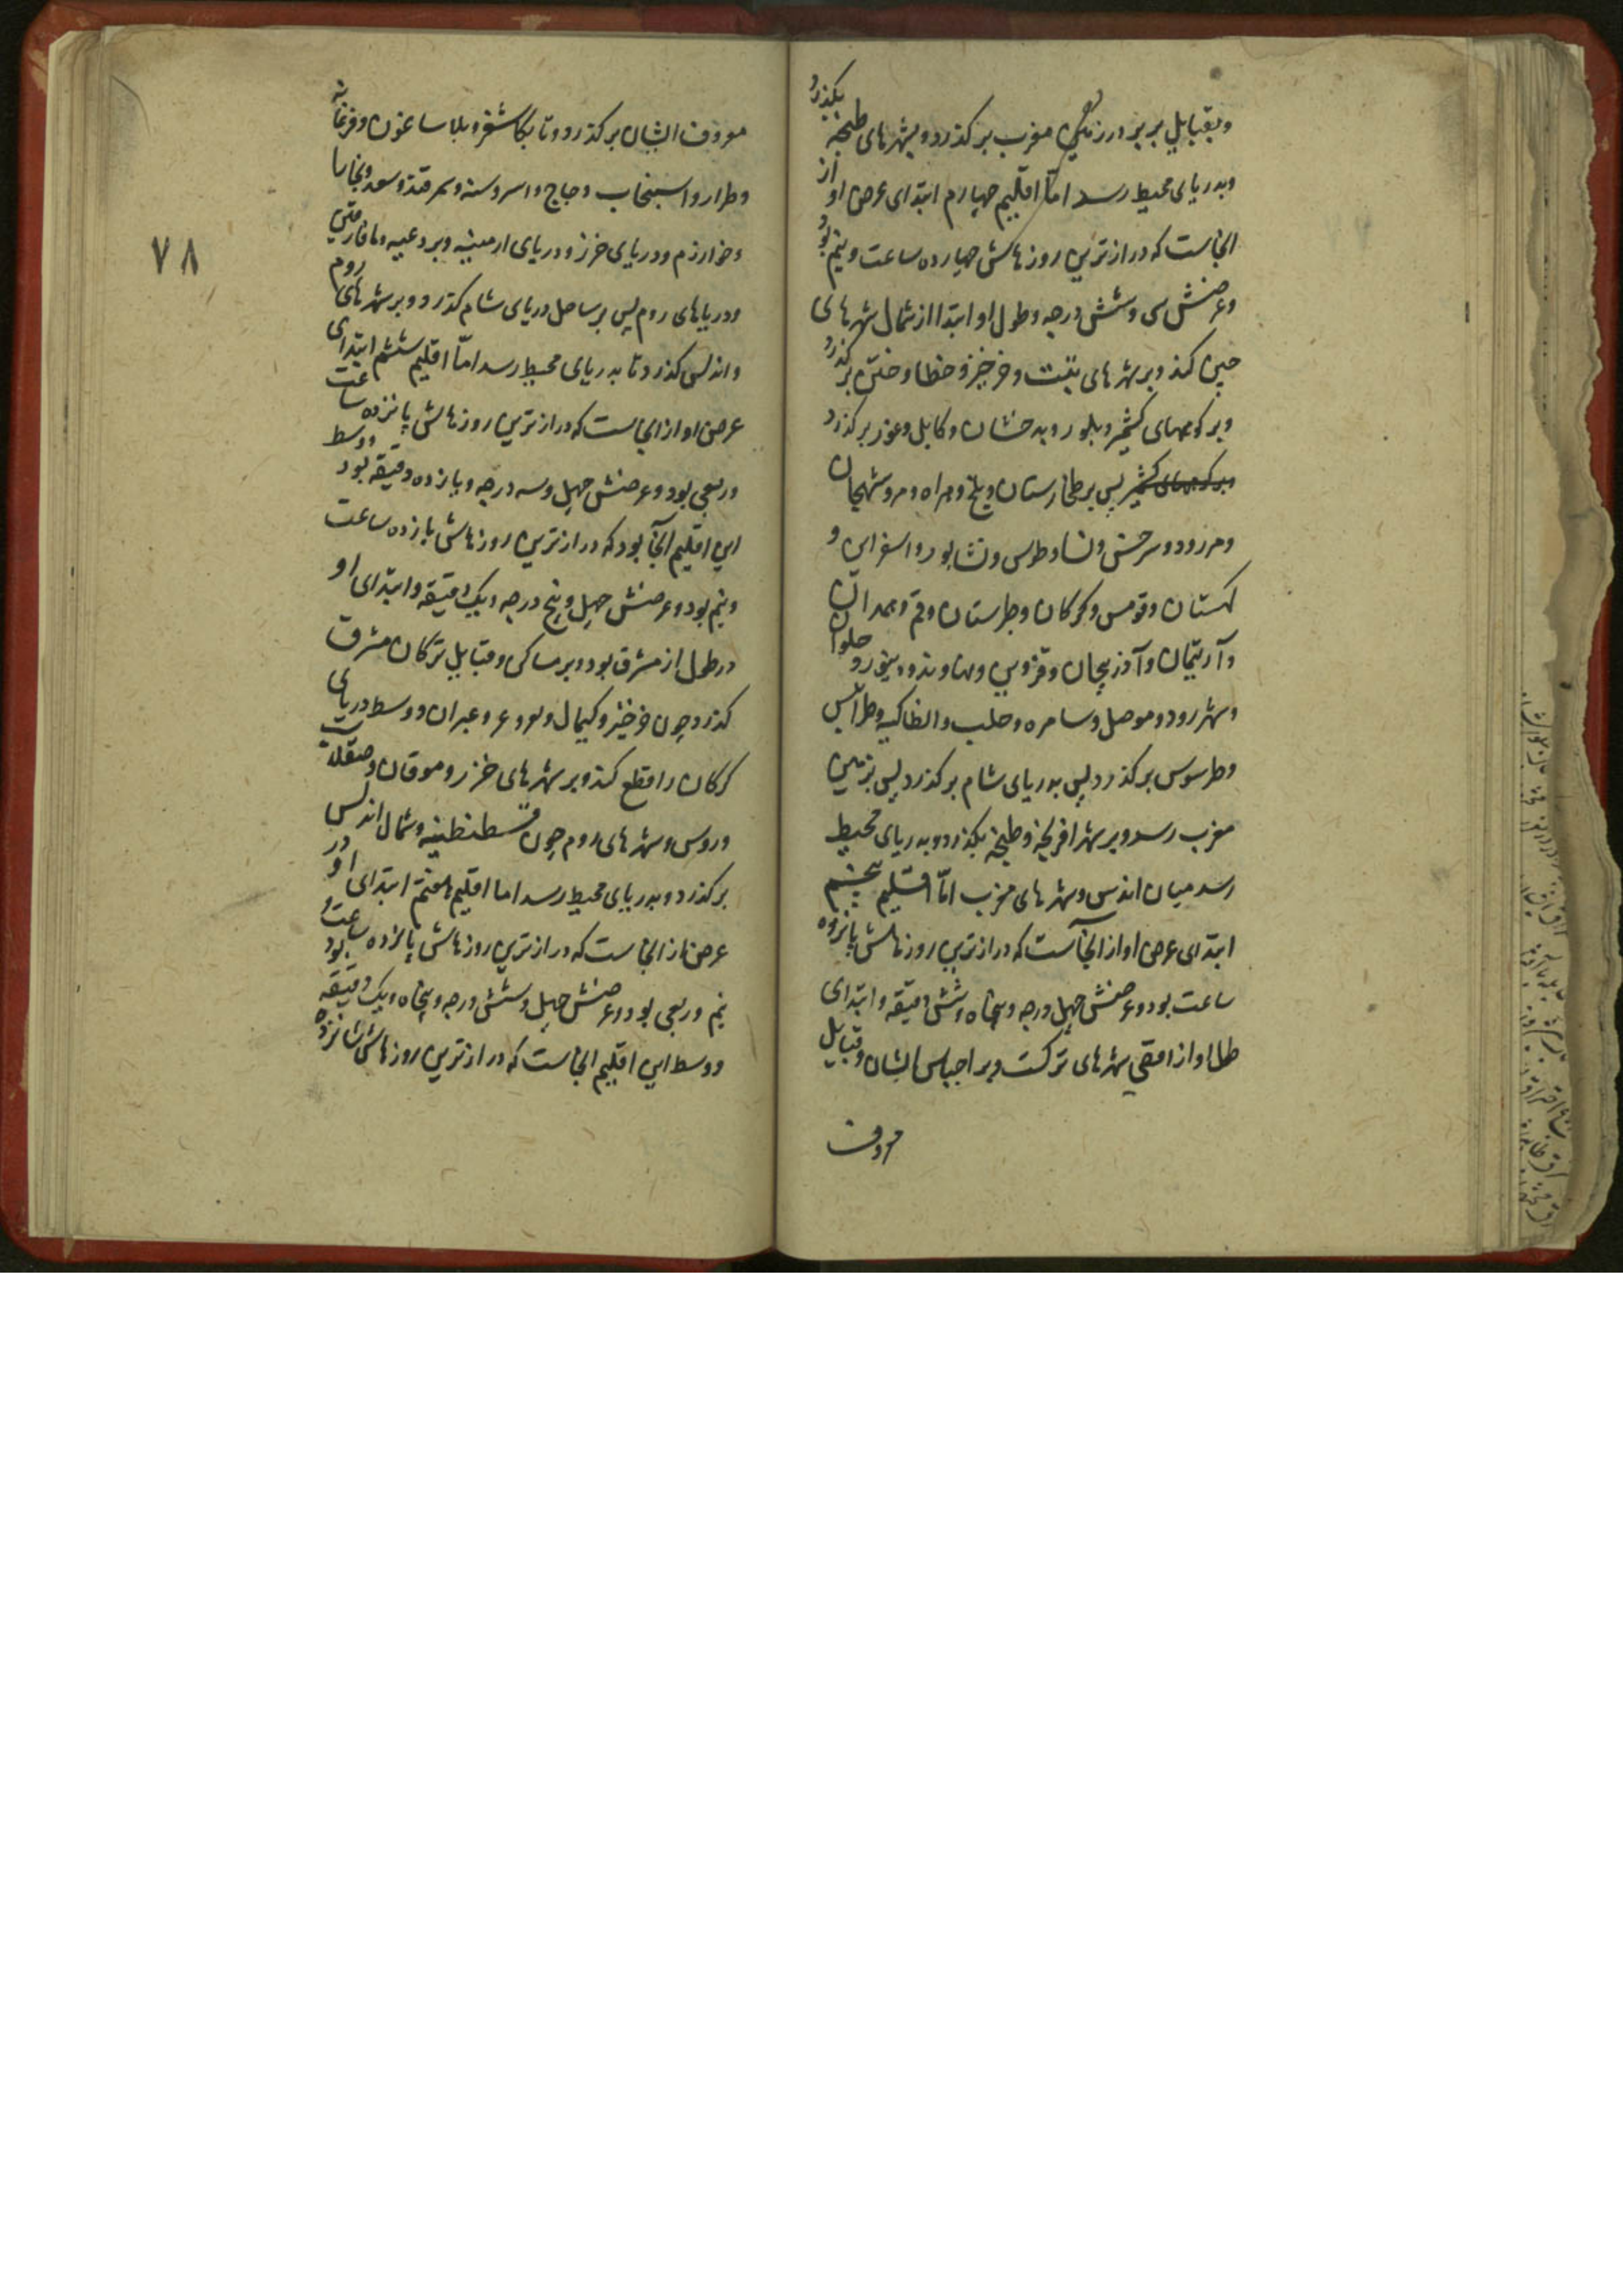 و بقبایل بربر در زمین مغرب برکذرد و بشهرهای طنجه بکذرد
و بدریای محیط رسد امّا اقلیم چهارم ابتدای عرض او از
انجاست که درازترین روزهاش چهارده ساعت و نیم بود
و عرضش سی و شش درجه و طول او ابتدا از شمال شهرهای
چین کند و بر شهرهای تبت و خرخیز و خطا و ختن برکذرد
و بر کوههای کشمیر و بلور و بدخشان و کابل و غور برکذرد
بر کوههای کشمیر پس بر طخارستان و بلخ و هراه و مرو شهجان
و مرورود و سرخس و نسا و طوس و نشابور و اسفراین و
کهستان و قومس و کرکان و طبرستان و قم و همدان
و آذربیجان و قزوین و نهاوند و دینور و حلوان
و شهرزور و موصل و سامره و حلب و انطاکیه و طرابلس
و طرسوس برکذرد پس بدریای شام برکذرد پس بزمین
مغرب رسد و بر شهر افرنجه و طنجه بکذرد و بدریای محیط
رسد میان اندلس و شهرهای مغرب امّا اقلیم پنجم
ابتدای عرض او از آنجاست که درازترین روزهاش پانزده
ساعت بود و عرضش چهل درجه و پنجاه و شش دقیقه و ابتدای
طول او از اقصی شهرهای ترکست و بر اجناس ایشان و قبایل
معروف
۷۸
معروف ایشان برکذرد و تا بکاشغر و بلاساغون و فرغانه
و طراز و اسبنجاب و چاج و اسروسنه و سمرقند و سعد و بخارا
و خوارزم و دریای خزر و دریای ارمینیه و بردعیه و مافارقین
و دریاهای روم پس بر ساحل دریای شام کذرد و بر شهرهای روم
و اندلس کذرد تا بدریای محیط رسد امّا اقلیم ششم ابتدای
عرض او از انجاست که درازترین روزهاش پانزده ساعت
و ربعی بود و عرضش چهل و سه درجه و پانزده دقیقه بود و وسط
این اقلیم آنجا بود که درازترین روزهاش پانزده ساعت
و نیم بود و عرضش چهل و پنج درجه و یک دقیقه و ابتدای او
در طول از مشرق بود و بر مساکن و قبایل ترکان مشرق
کذرد چون خرخیز و کیمال و وسط دریای
کرکان را قطع کند و بر شهرهای خزر و موقان و صقلاب
و روس و شهرهای روم چون قسطنطینیه و شمال اندلس
برکذرد و بدریای محیط رسد اما اقلیم هفتم ابتدای او در
عرض از انجاست که درازترین روزهاش پانزده ساعت و
نیم و ربعی بود و عرضش چهل و شش درجه و پنجاه و یک دقیقه بود
و وسط این اقلیم انجاست که درازترین روزهاش شانزده